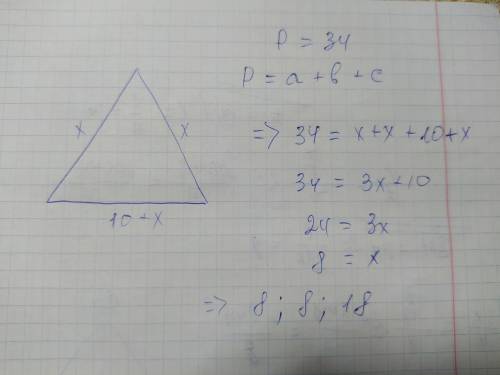 P = 34
P = a + b + c
x
x
10+x
=> 34 = x+x+10+x
34 = 3x+10
24 = 3x
8 = x
=> 8; 8; 18